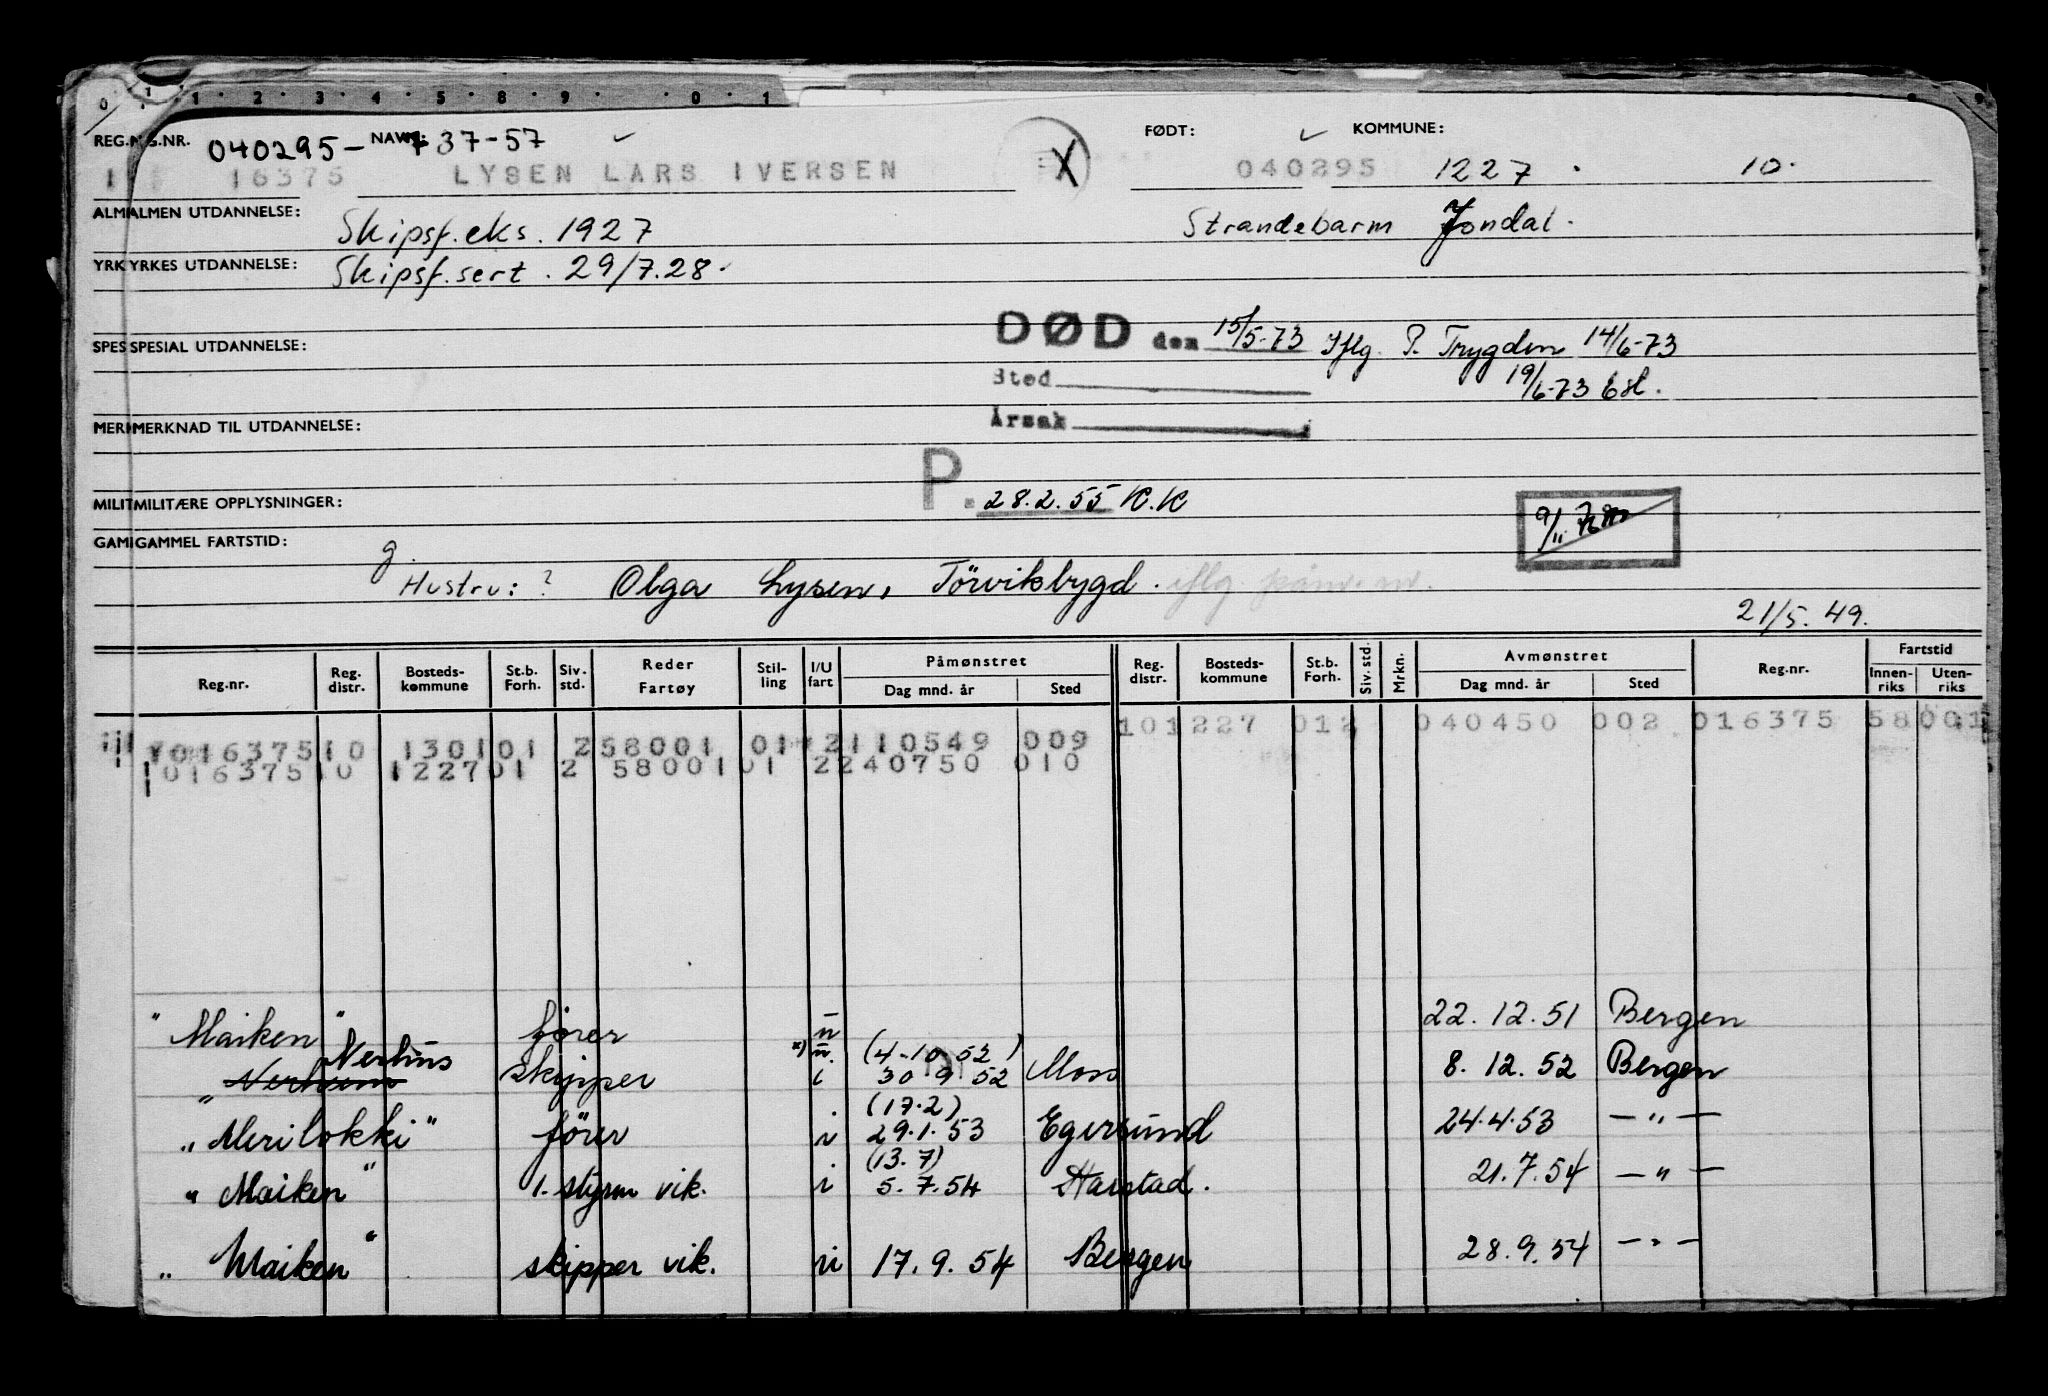 0 1 1 2 3 4 5 8 9 0 1
REG.NR. 040295- NAVN: 37-57 FØDT: KOMMUNE:
16375 LYSEN LARS IVERSEN X 040295 1227 10.
ALMEN UTDANNELSE: Skipsf.eks. 1927 Strandebarm Jondal.
YRKES UTDANNELSE: Skipsf.sert. 29/7.28.
DØD den 15/5-73 Iflg. P. Trygden 14/6-73
SPESIAL UTDANNELSE:
Sted 19/6-73
MERKNAD TIL UTDANNELSE: Årsak
P. 28.2.55 K.K
MILITÆRE OPPLYSNINGER: 9/11
GAMMEL FARTSTID: g.
Hustru: ? Olga Lysen, Törvikbygd. iflg.
21/5.49.
Reg.nr. Reg. distr. Bosteds- kommune St.b. Forh. Siv. std. Reder Fartøy Stil- ling I/U fart Påmønstret Dag mnd. år Sted Reg. distr. Bosteds- kommune St.b. Forh. Siv. std. Mrkn. Avmønstret Dag mnd. år Sted Reg.nr. Fartstid Innen- riks Uten- riks
101227 012 040450 002 016375 58001
016375 10 130101 2 58001 01 2110549 009
016375 10 122701 2 58001 01 2240750 010
"Maiken" fører u 22.12.51 Bergen
Nerhus
" skipper x) u. i (4-10 52) 30 9 52 Moss 8.12.52 Bergen
"Merilokki" fører i (17.2) 29.1.53 Egersund 24.4.53 — " —
"Maiken" 1. styrm vik. i (13.7) 5.7.54 Harstad. 21.7.54 — " —
"Maiken" skipper vik. 17.9.54 Bergen 28.9.54 — " —